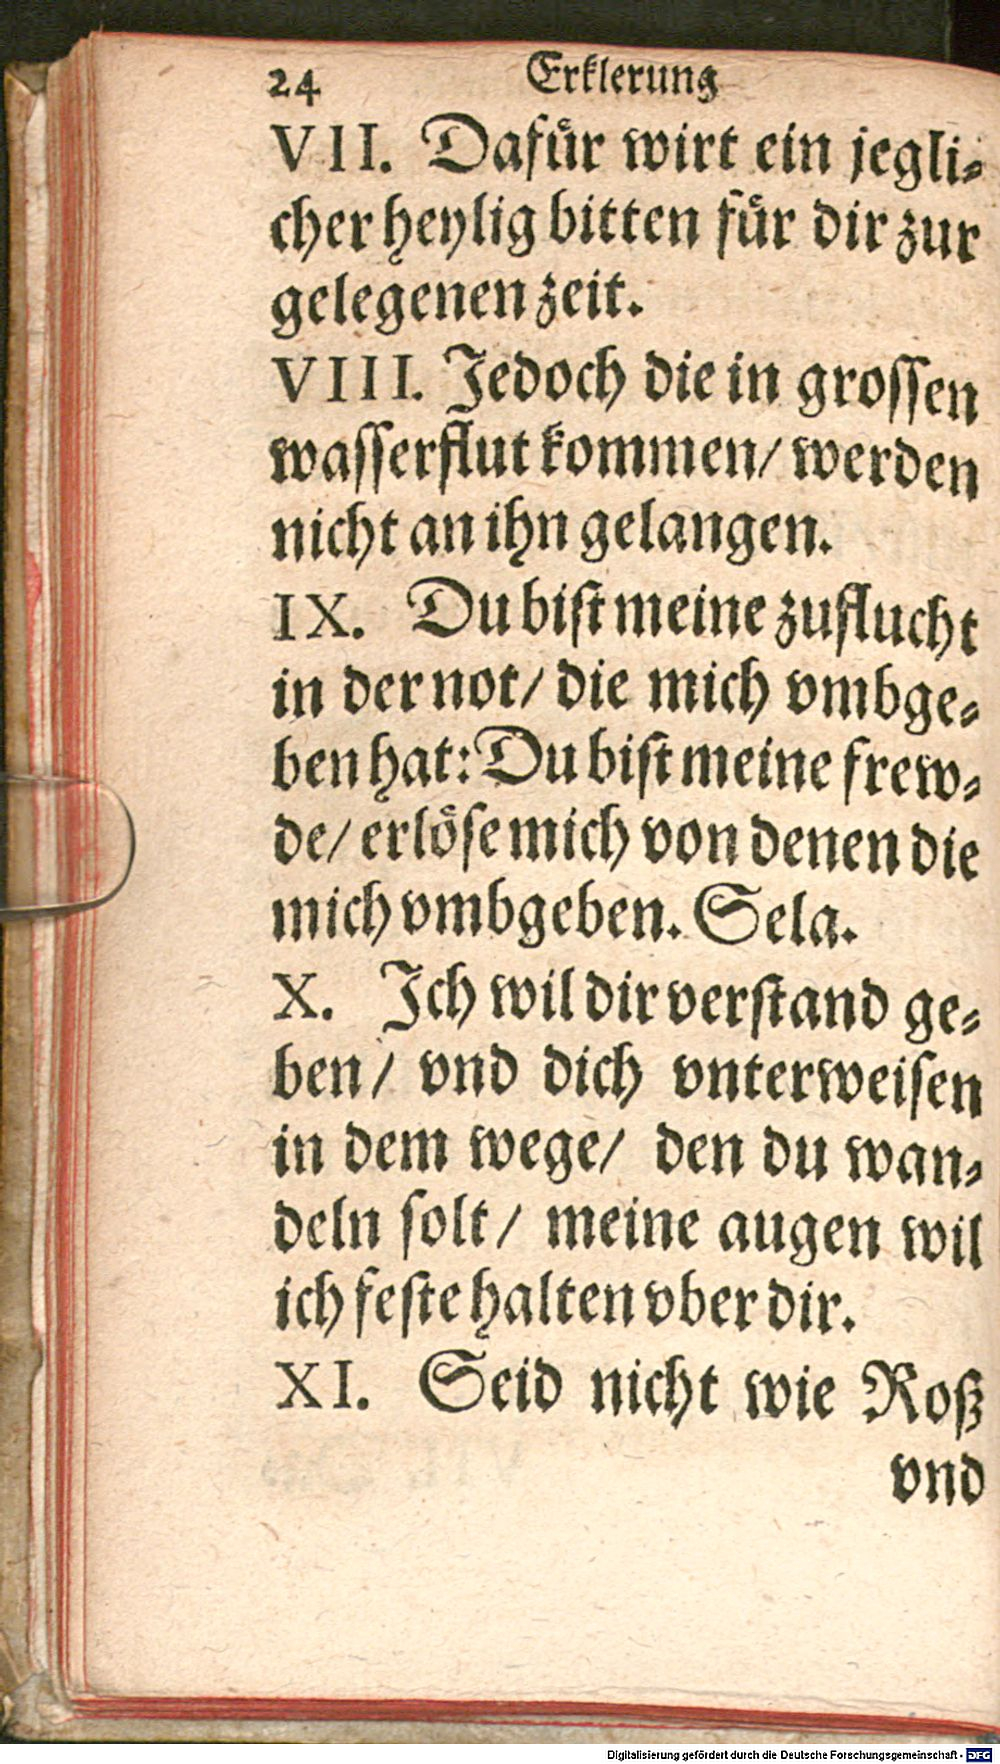 24 Erklerung
VII. Dafuͤr wirt ein jegli⸗
cher heylig bitten fuͤr dir zur
gelegenen zeit.
VIII. Jedoch die in grossen
wasserflut kommen/ werden
nicht an ihn gelangen.
IX. Du bist meine zuflucht
in der not/ die mich vmbge⸗
ben hat: Du bist meine frew⸗
de/ erloͤse mich von denen die
mich vmbgeben. Sela.
X. Ich wil dir verstand ge⸗
ben/ vnd dich vnterweisen
in dem wege/ den du wan⸗
deln solt/ meine augen wil
ich feste halten vber dir.
XI. Seid nicht wie Roß
vnd
Digitalisierung gefördert durch die Deutsche Forschungsgemeinschaft - DFG